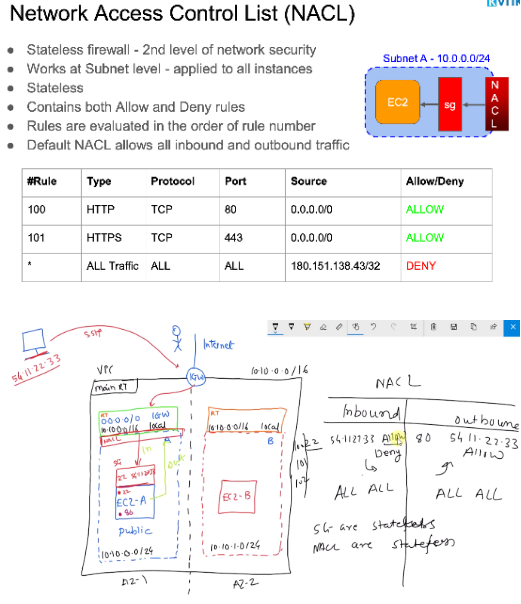 Network Access Control List (NACL)
Stateless firewall - 2nd level of network security
Works at Subnet level - applied to all instances
Stateless
Contains both Allow and Deny rules
Rules are evaluated in the order of rule number
Default NACL allows all inbound and outbound traffic
Subnet A - 10.0.0.0/24
EC2
sg
NACL
#Rule Type Protocol Port Source Allow/Deny
100 HTTP TCP 80 0.0.0.0/0 ALLOW
101 HTTPS TCP 443 0.0.0.0/0 ALLOW
* ALL Traffic ALL ALL 180.151.138.43/32 DENY
54.11.22.33
Internet
VPC
IGW
10.10.0.0/16
main RT
RT
0.0.0.0/0 IGW
10.10.0.0/16 local
NACL
A
IN
OUT
SG
22
EC2-A
Public
10.10.0.0/24
AZ-1
RT
10.10.0.0/16 local
B
EC2-B
10.10.1.0/24
AZ-2
NACL
Inbound
22 54.11.22.33 Allow
Deny
ALL ALL
outbound
80 54.11.22.33
Allow
ALL ALL
SG are
NACL are